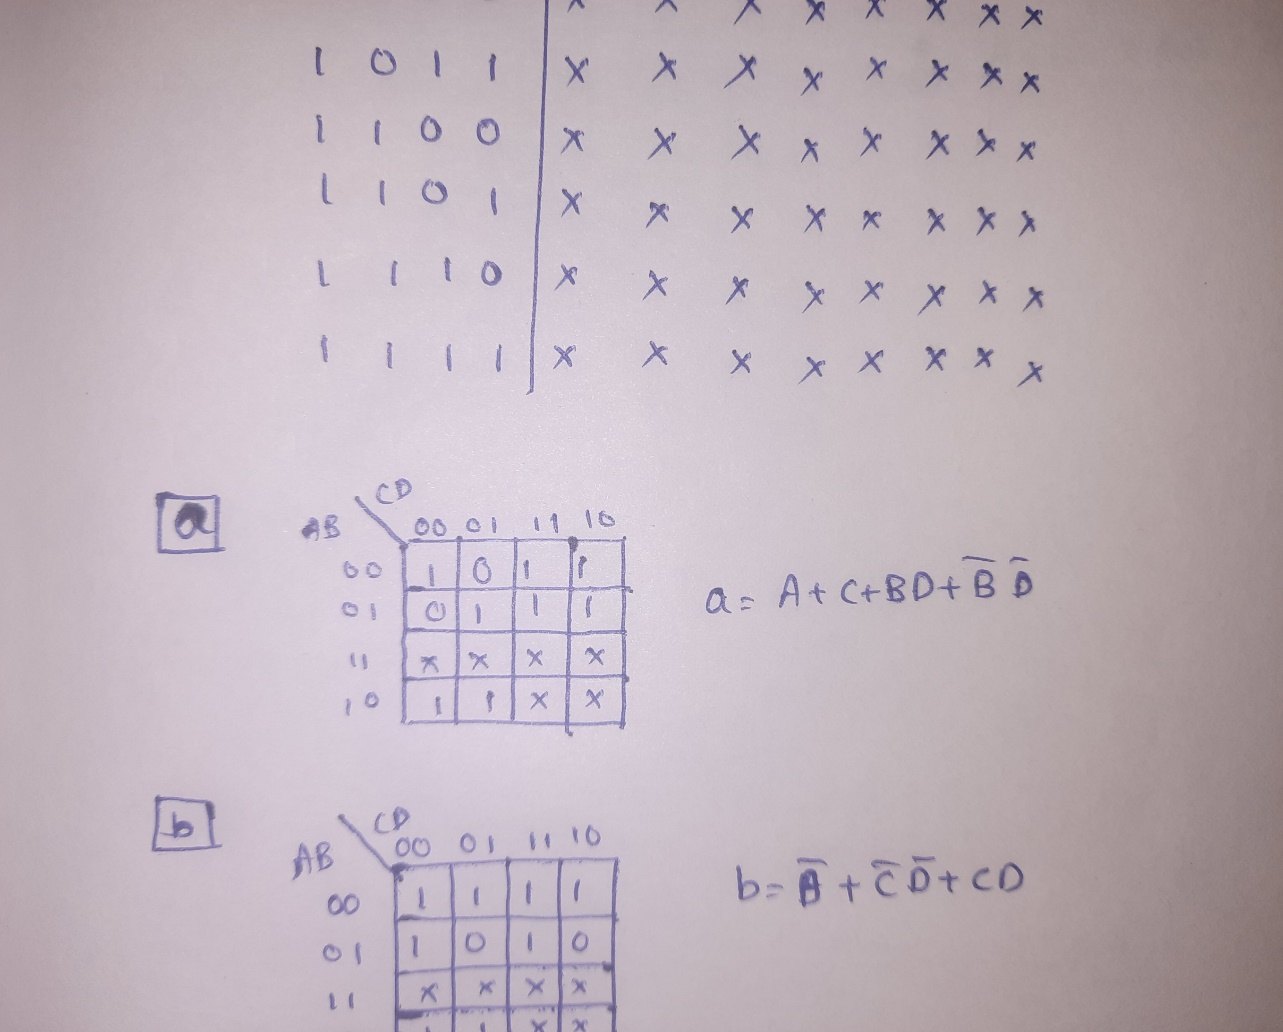 x x x x x x x x
1 0 1 1 x x x x x x x x
1 1 0 0 x x x x x x x x
1 1 0 1 x x x x x x x x
1 1 1 0 x x x x x x x x
1 1 1 1 x x x x x x x x
a
CD
AB 00 01 11 10
00 1 0 1 1
01 0 1 1 1
11 x x x x
10 1 1 x x
a = A + C + BD + B̅ D̅
b
CD
AB 00 01 11 10
00 1 1 1 1
01 1 0 1 0
11 x x x x
1 1 x x
b = B̅ + C̅ D̅ + CD